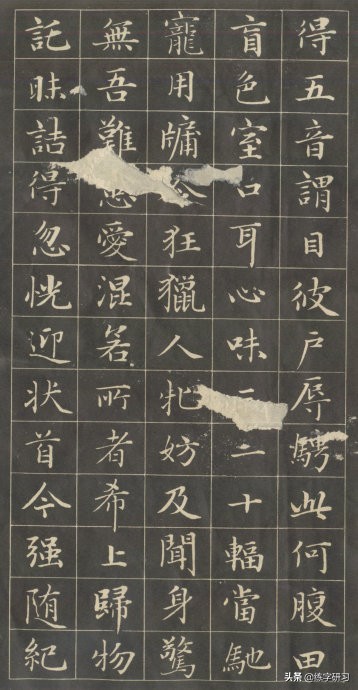 得五音謂目彼戶辱騁此何腹田
盲色室口耳心味二十輻當馳
寵用牖狂獵人妨及聞身驚
無吾難愛混若所者希上歸物
託昧詰得忽恍迎状首今强随紀
头条 @练字研习